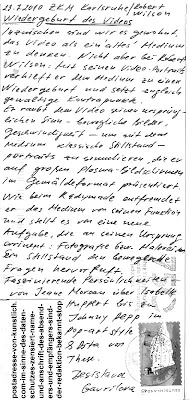 23.7.2010 ZKM Karlsruhe/Robert Wilson
Wiedergeburt des Videos
Inzwischen sind wir es gewohnt,
das Video als ein altes Medium
zu denken. Nicht aber bei Robert
Wilson: Mit seinen Video-Portraits
verhilft er dem Medium zu einer
Wiedergeburt und setzt zugleich
gewaltige Kontrapunkte.
Er raubt dem Video seine ursprüng-
lichen Sinn - bewegliche Bilder,
Geschwindigkeit - um mit dem
Medium klassische Stillstand-
portraits zu simulieren, die er
auf großen Plasma-Bildschirmen
im Gemäldeformat präsentiert.
Wie beim Readymade entfremdet
er das Medium von seiner Funktion
und stellt es vor eine neue
Aufgabe, die an seinen Ursprung
erinnert: Fotografie bzw. Malerei.
Ein Stillstand der bewegliche
Fragen hervorruft.
Faszinierende Persönlichkeiten
von Jeanne Moreau über Isabelle
Huppert bis zu
Johnny Depp im
pop-art style
à Arte von
These.
Desislava
Gavrilova
postadresse-von-kunstlich
com-in-sinne-des-daten-
schutzes-erscheinen-name-
und-anschrift-des-absend-
ers-und-empfängers-sind-
der-redaktion-bekannt-stop